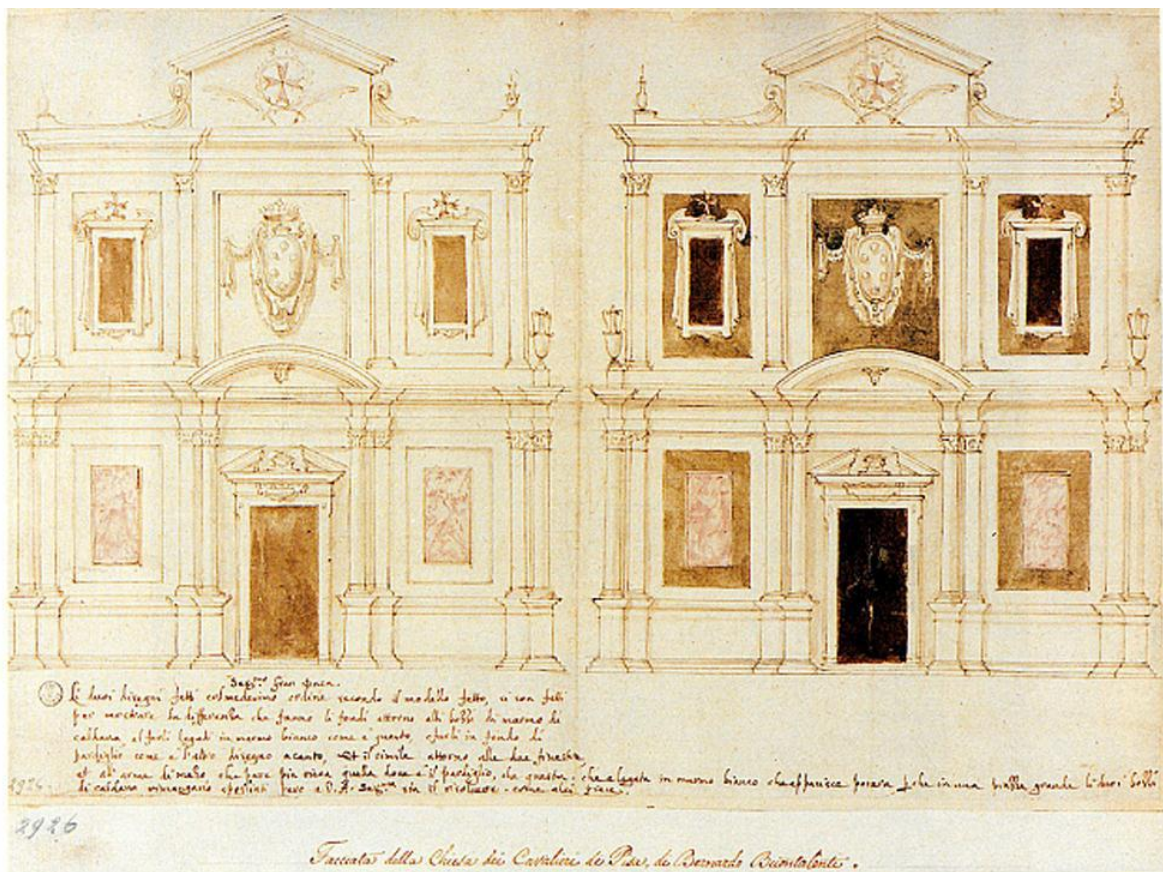 Gran Duca.
Li duoi disegni fatti col medesimo ordine secondo il modello fatto, si son fatti
per mostrare la differentia che fanno li fondi attorno alli bozzi di marmo di
caldana, al farli legati in marmo bianco come è questo, o farli in fondo di
pardiglio come è l'altro disegno acanto, et il simile attorno alle due finestre
et all'arme di mezo, che pare più ricca quella dove è il pardiglio, che questa, che è legata in marmo bianco che apparisce povera in una piazza grande li duoi bozzi
di caldana però a V. A. sta il risolvere come a lei piace.
2926
2926
Facciata della Chiesa dei Cavalieri de Pisa, de Bernardo Buontalente.